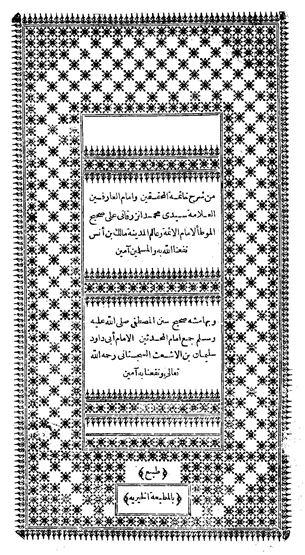 من شرح خاتمة المحققين وامام العارفين
العلامة سيدى محمد الزرقانى على صحيح
الموطا لامام الائمة وعالم المدينة مالك بن أنس
نفعنا الله به والمسلمين آمين
وبهامشه صحيح سنن المصطفى صلى الله عليه
وسلم جمع امام المحدثين الامام أبى داود
سليمان بن الاشعث السجستانى رحمه الله
تعالى ونفعنا به آمين
﴿طبع﴾
﴿بالمطبعة الخيرية﴾